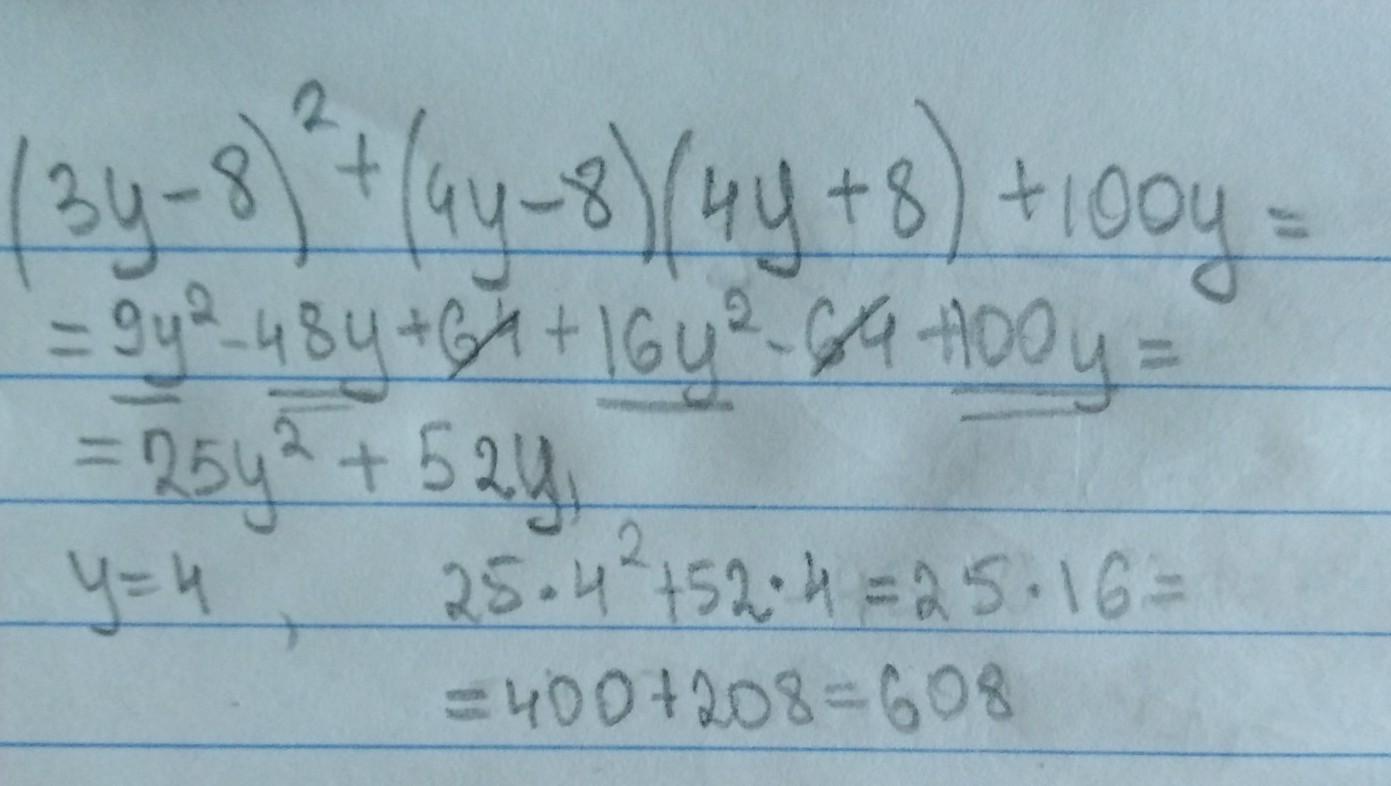 (3y-8)²+(4y-8)(4y+8)+100y=
=9y²-48y+64+16y²-64+100y=
=25y²+52y,
y=4, 25·4²+52·4=25·16=
=400+208=608